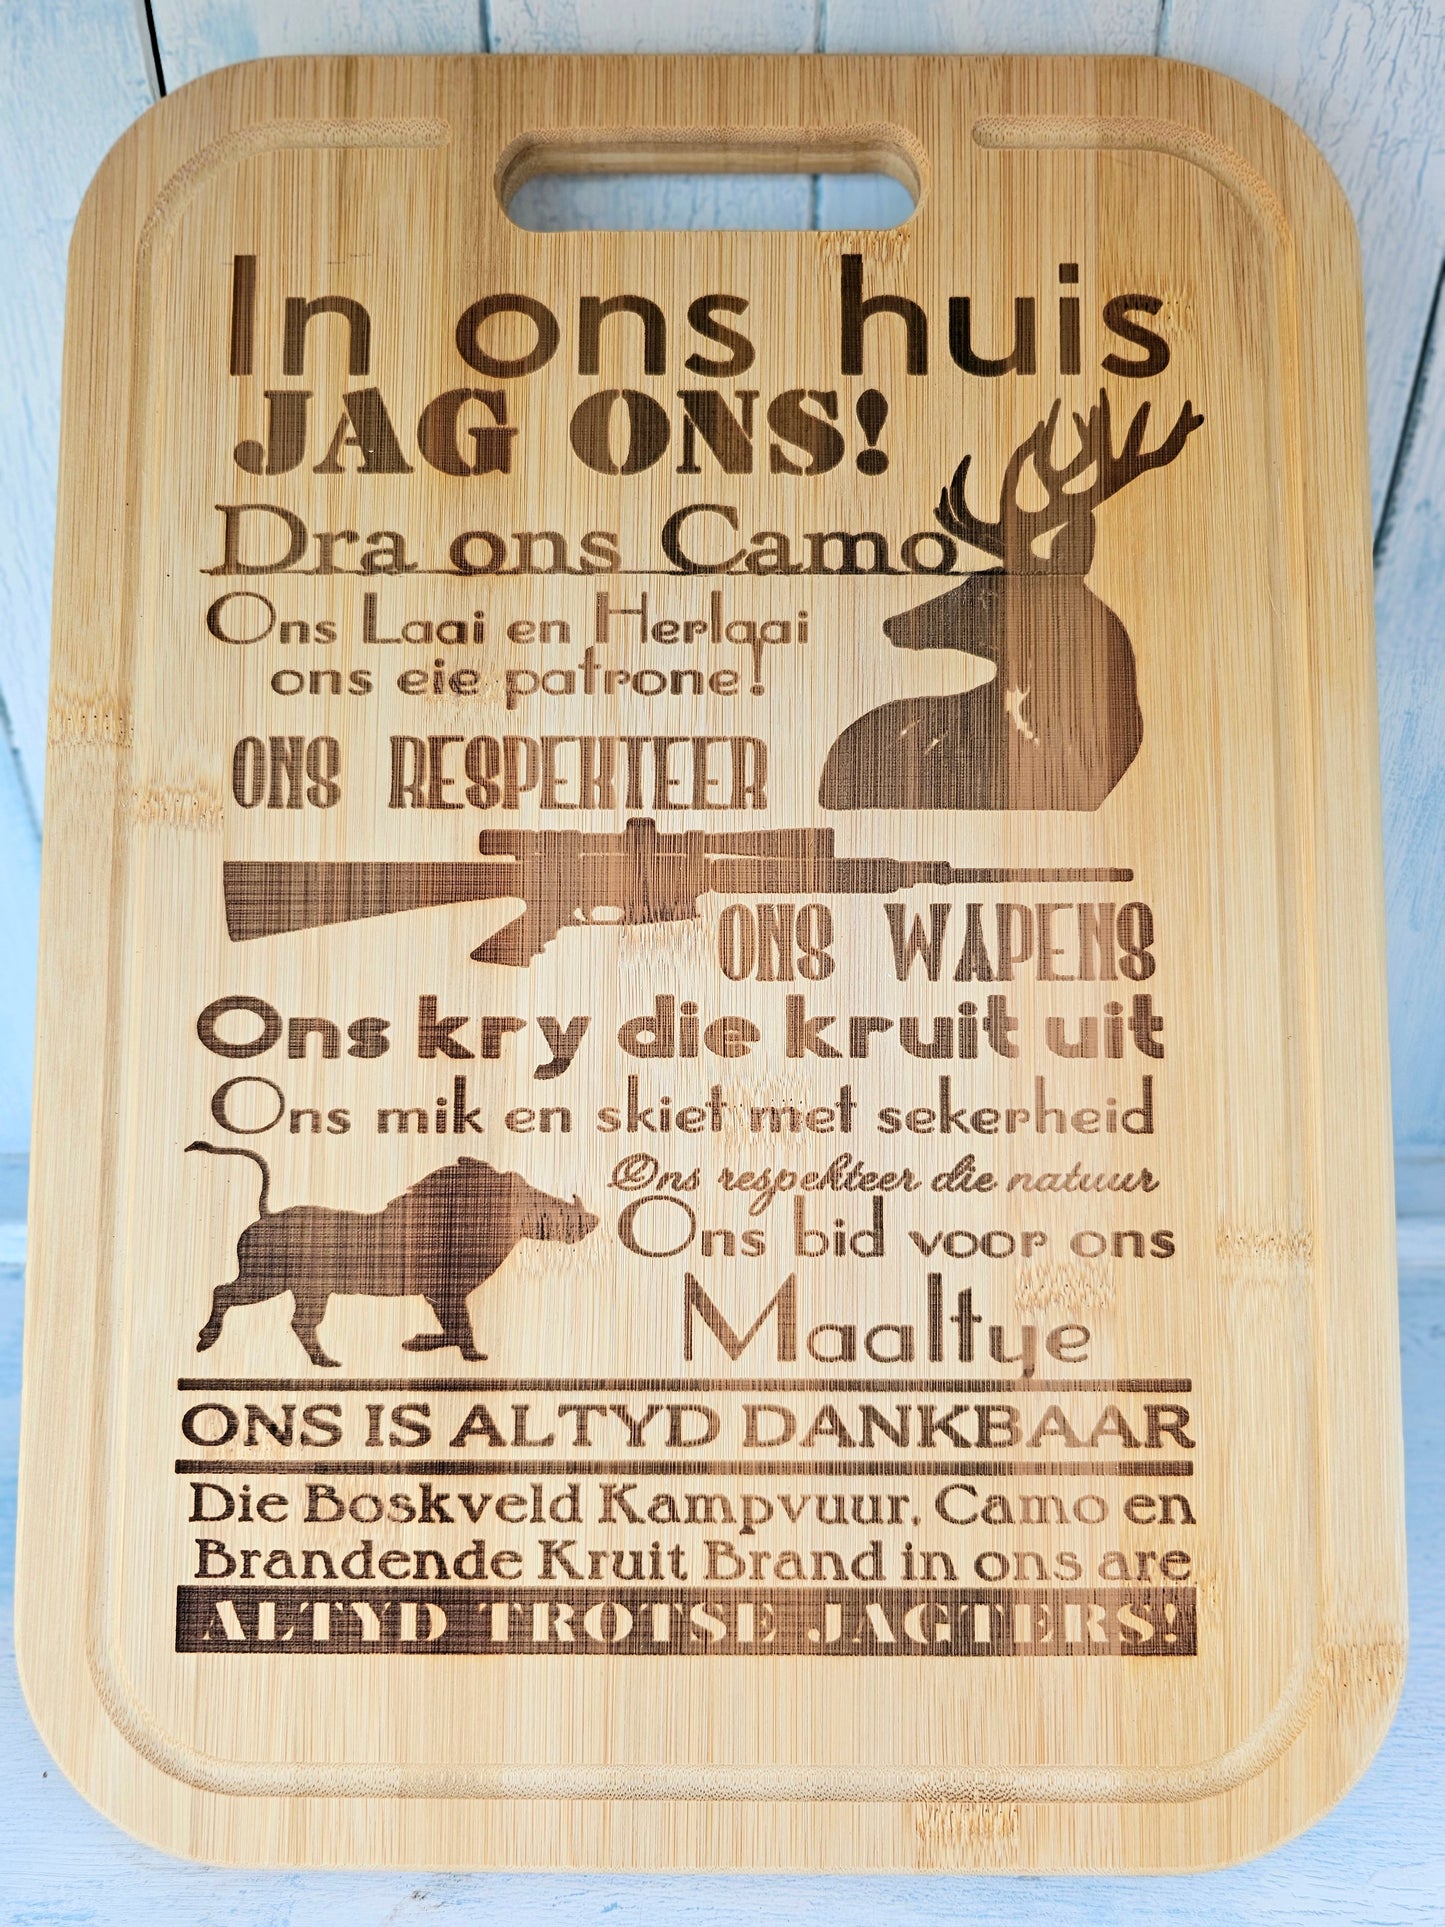 In ons huis
JAG ONS!
Dra ons Camo
Ons Laai en Herlaai
ons eie patrone!
ONS RESPEKTEER
ONS WAPENS
Ons kry die kruit uit
Ons mik en skiet met sekerheid
Ons respekteer die natuur
Ons bid voor ons
Maaltye
ONS IS ALTYD DANKBAAR
Die Boskveld Kampvuur, Camo en
Brandende Kruit Brand in ons are
ALTYD TROTSE JAGTERS!